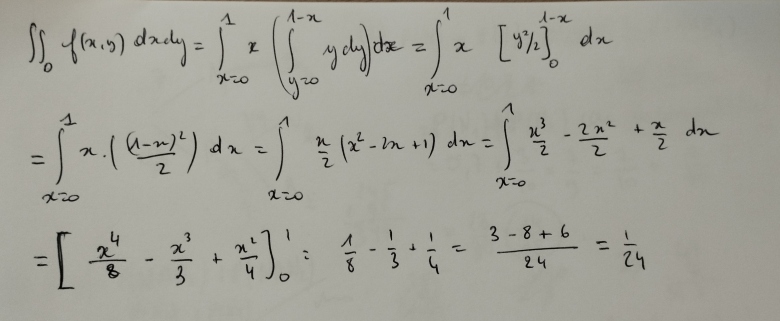 ∬_D f(x,y) dxdy = ∫_{x=0}^{1} x (∫_{y=0}^{1-x} y dy) dx = ∫_{x=0}^{1} x [y²/2]_0^{1-x} dx
= ∫_{x=0}^{1} x · ((1-x)²/2) dx = ∫_{x=0}^{1} x/2 (x² - 2x + 1) dx = ∫_{x=0}^{1} x³/2 - 2x²/2 + x/2 dx
= [x⁴/8 - x³/3 + x²/4]_0^1 = 1/8 - 1/3 + 1/4 = (3 - 8 + 6)/24 = 1/24